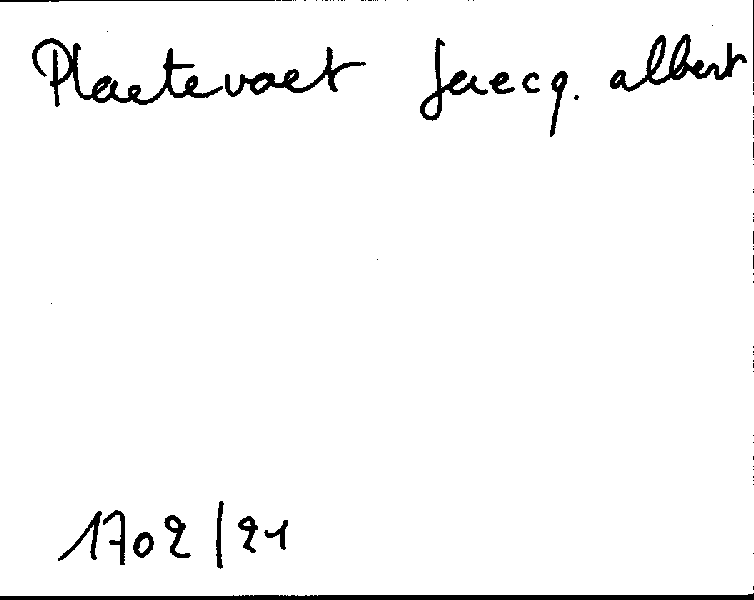 Plaetevoet Jaecq. albert
1702/21